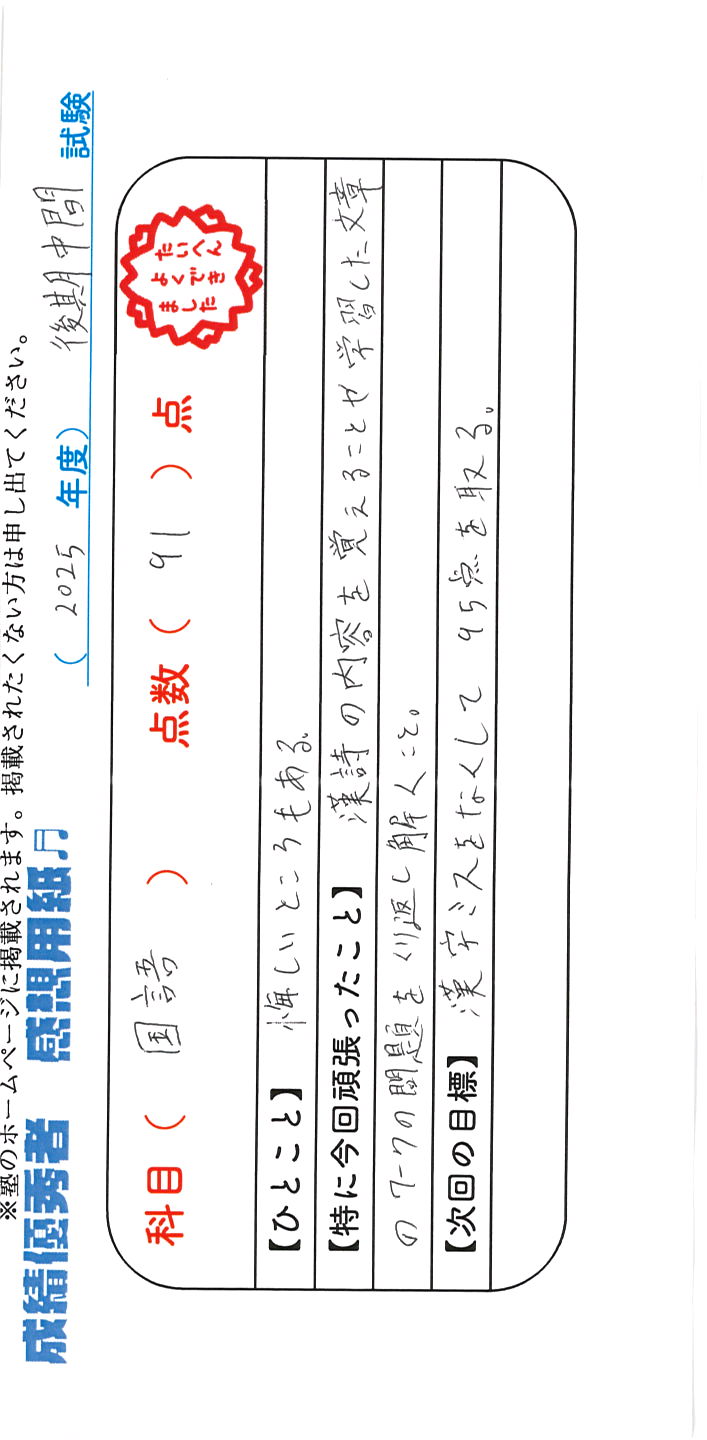 ※塾のホームページに掲載されます。掲載されたくない方は申し出てください。
成績優秀者 感想用紙♫
( 2025 年度) 後期中間 試験
科目( 国語 ) 点数( 91 )点
たいへん
よくでき
ました
【ひとこと】 悔しいところもある。
【特に今回頑張ったこと】 漢詩の内容を覚えることや学習した文章
のワークの問題をくり返し解くこと。
【次回の目標】 漢字ミスをなくして95点を取る。